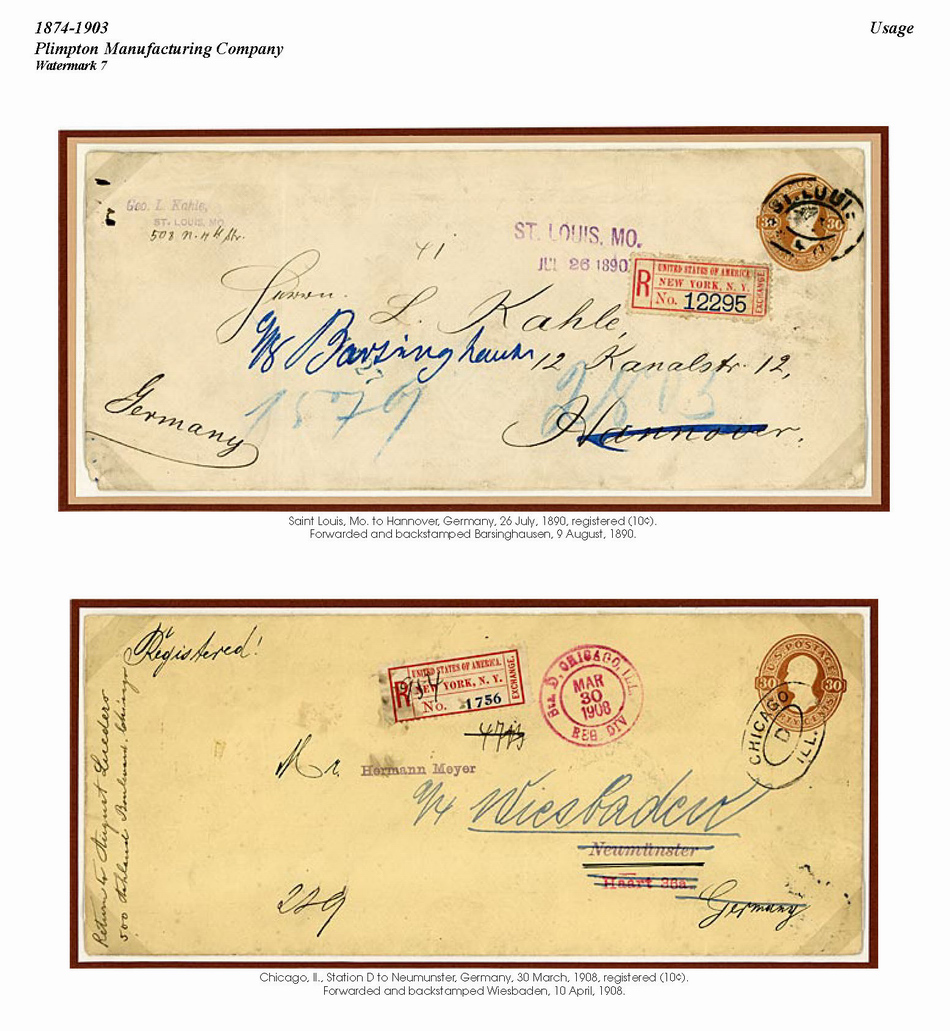 1874-1903
Usage
Plimpton Manufacturing Company
Watermark 7
Geo. L. Kahle,
ST. LOUIS, MO
508 N. 4th Str.
ST. LOUIS
30 30
41
ST. LOUIS, MO.
JUL 26 1890
R
UNITED STATES OF AMERICA
NEW YORK, N. Y.
No. 12295
EXCHANGE
Herrn.
L. Kahle,
Barsinghausen
12 Kanalstr. 12,
1579
2803
Germany
Hannover.
Saint Louis, Mo. to Hannover, Germany, 26 July, 1890, registered (10¢).
Forwarded and backstamped Barsinghausen, 9 August, 1890.
Registered!
Return to August Lueders
500 Ashland Boulevard. Chicago
R
UNITED STATES OF AMERICA.
NEW YORK, N. Y.
No. 1756
EXCHANGE
Sta. D, CHICAGO, ILL.
MAR
30
1908
REG. DIV
U.S. POSTAGE
30 30
THIRTY CENTS
CHICAGO
D
ILL.
Mr. Hermann Meyer
Wiesbaden
Neumünster
Haart 36a
229
Germany
Chicago, Il., Station D to Neumunster, Germany, 30 March, 1908, registered (10¢).
Forwarded and backstamped Wiesbaden, 10 April, 1908.